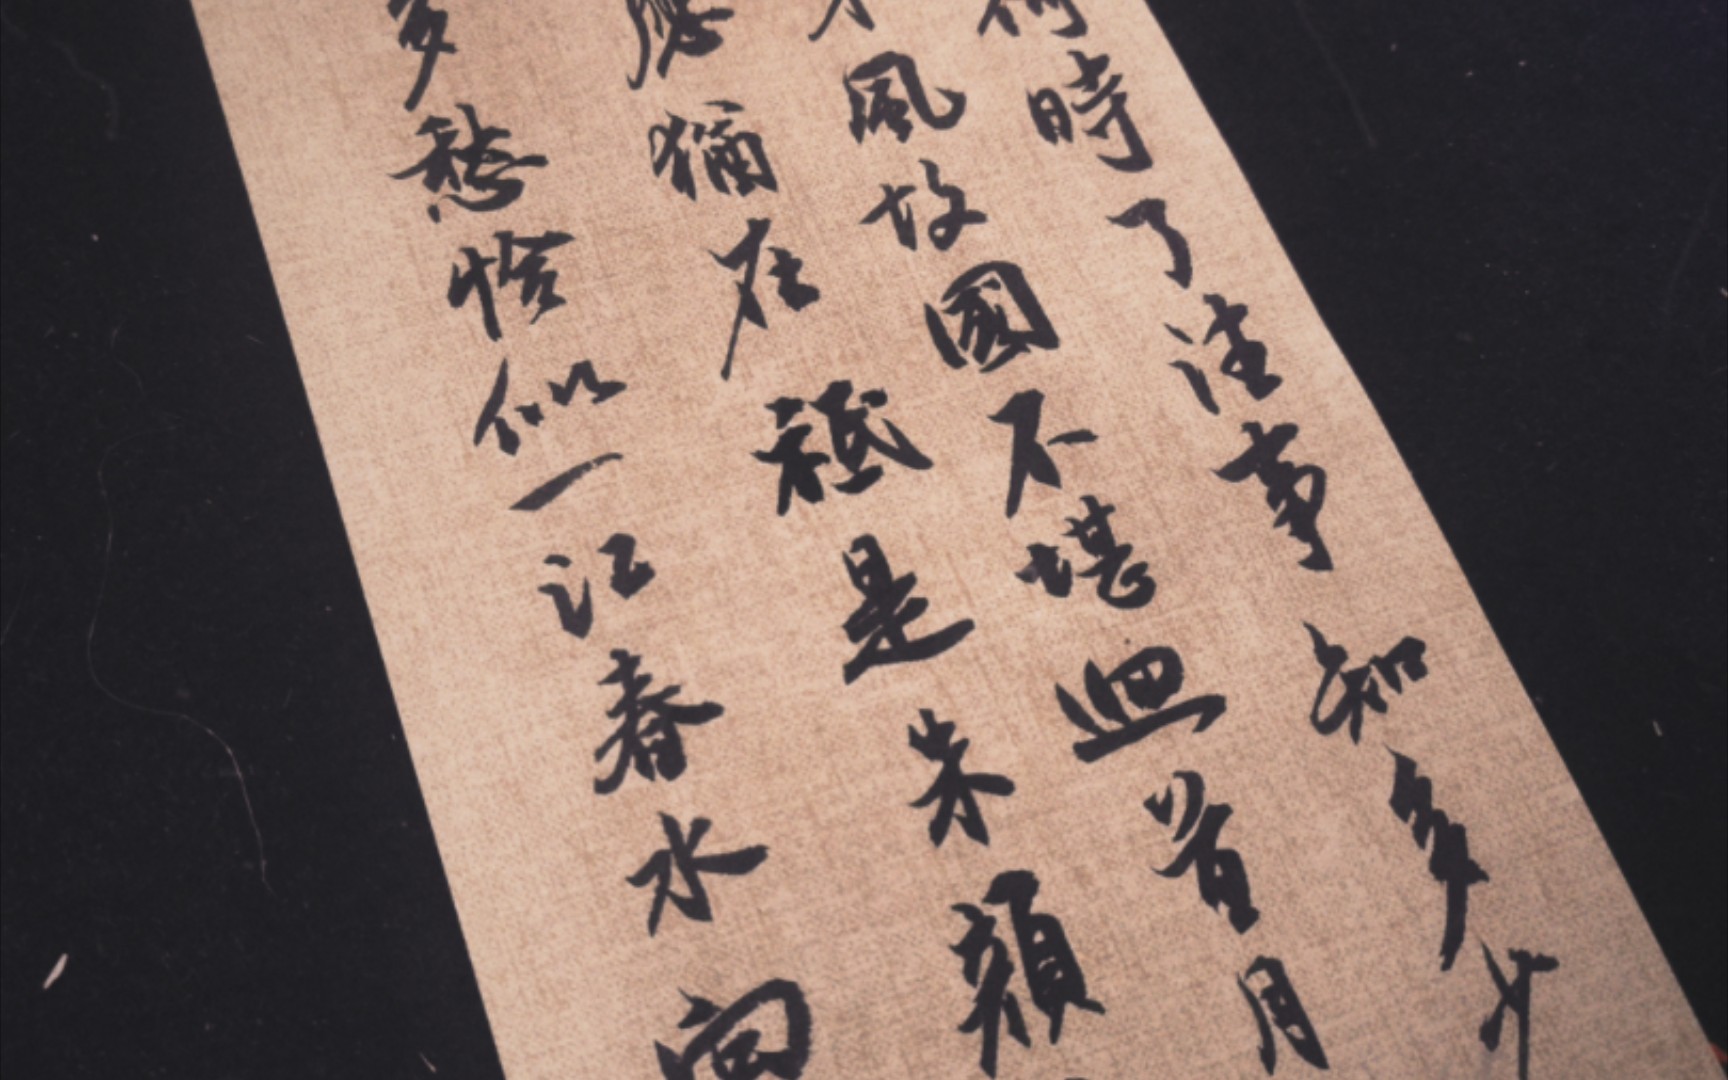 何時了往事知多少
風故國不堪迴首月
應猶在祗是朱顏
多愁恰似一江春水向